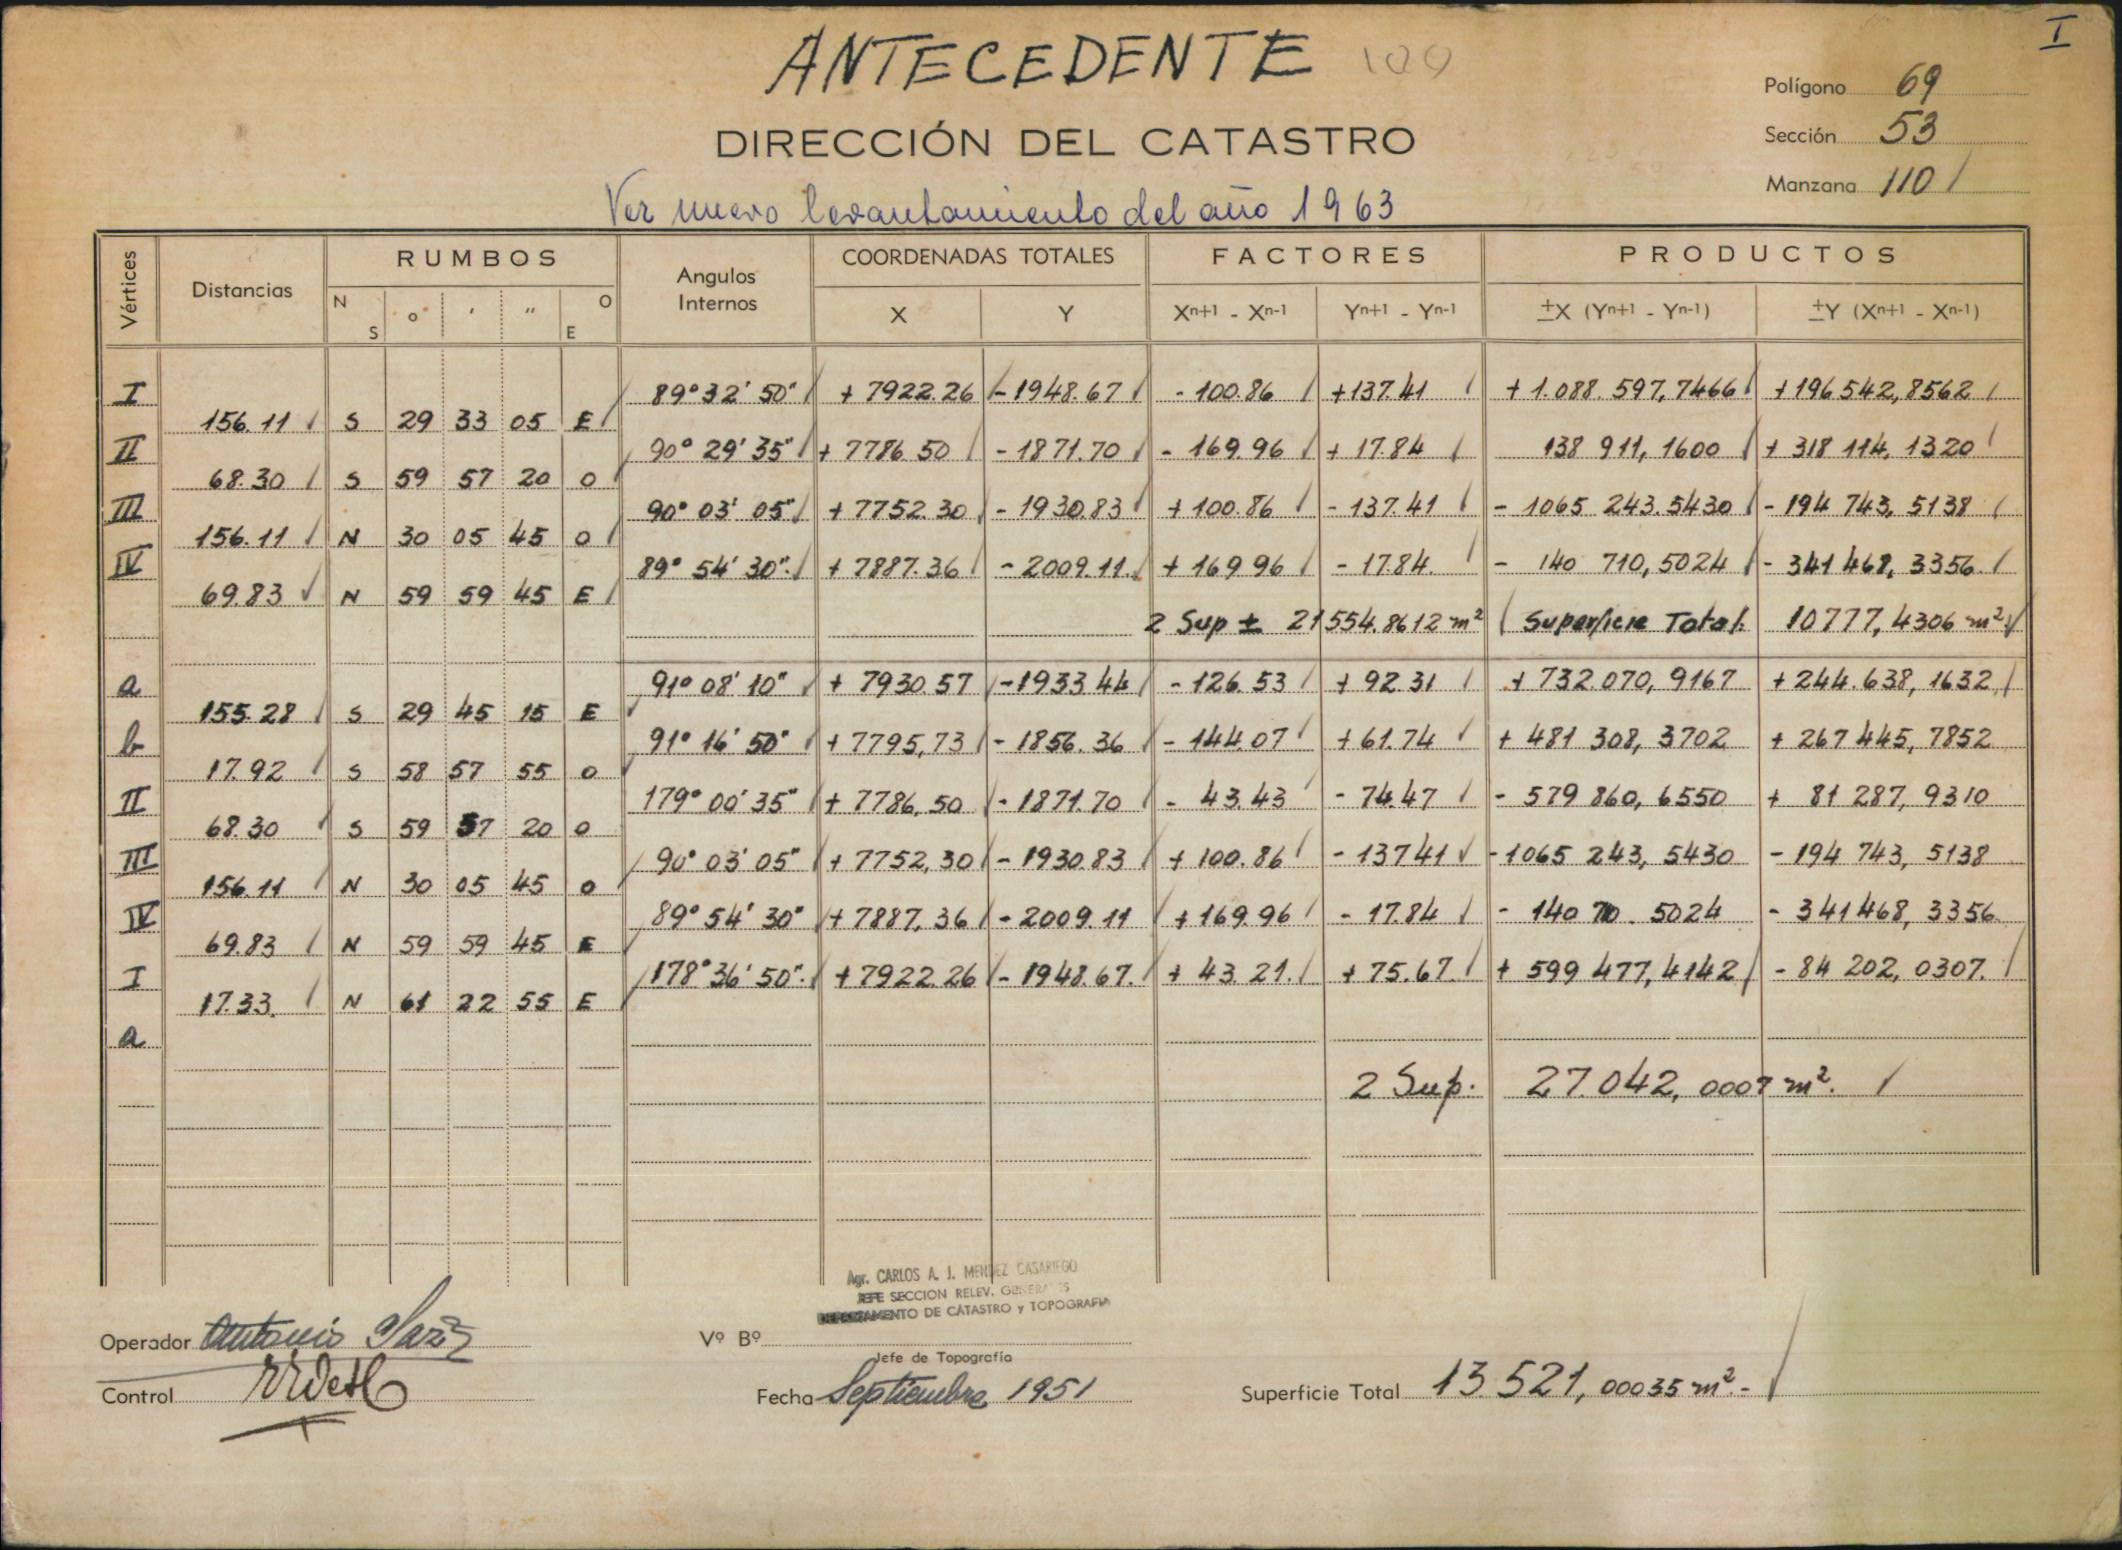 I
ANTECEDENTE 109
Polígono 69
DIRECCIÓN DEL CATASTRO
Sección 53
Manzana 110
Ver nuevo levantamiento del año 1963
Vértices Distancias RUMBOS Angulos Internos COORDENADAS TOTALES FACTORES PRODUCTOS
N S o ' " O E X Y Xn+1 - Xn-1 Yn+1 - Yn-1 ±X (Yn+1 - Yn-1) ±Y (Xn+1 - Xn-1)
I 89° 32' 50" + 7922.26 - 1948.67 - 100.86 + 137.41 + 1.088.597,7466 + 196 542,8562
156.11 S 29 33 05 E
II 90° 29' 35" + 7786.50 - 1871.70 - 169.96 + 17.84 138 911,1600 + 318 114,1320
68.30 S 59 57 20 O
III 90° 03' 05" + 7752.30 - 1930.83 + 100.86 - 137.41 - 1065 243.5430 - 194 743,5138
156.11 N 30 05 45 O
IV 89° 54' 30" + 7887.36 - 2009.11 + 169.96 - 17.84 - 140 710,5024 - 341 468,3356
69.83 N 59 59 45 E
2 Sup ± 21554.8612 m² Superficie Total. 10777,4306 m²
a 91° 08' 10" + 7930.57 - 1933.44 - 126.53 + 92.31 + 732.070,9167 + 244.638,1632
155.28 S 29 45 15 E
b 91° 16' 50" + 7795,73 - 1856.36 - 144.07 + 61.74 + 481 308,3702 + 267 445,7852
17.92 S 58 57 55 O
II 179° 00' 35" + 7786,50 - 1871.70 - 43.43 - 74.47 - 579 860,6550 + 81 287,9310
68.30 S 59 57 20 O
III 90° 03' 05" + 7752,30 - 1930.83 + 100.86 - 137.41 - 1065 243,5430 - 194 743,5138
156.11 N 30 05 45 O
IV 89° 54' 30" + 7887,36 - 2009.11 + 169.96 - 17.84 - 140 710.5024 - 341 468,3356
69.83 N 59 59 45 E
I 178° 36' 50" + 7922.26 - 1948.67. + 43.21. + 75.67 + 599 477,4142 - 84 202,0307.
17.33 N 61 22 55 E
a
2 Sup. 27.042,0007 m².
Agr. CARLOS A. J. MENDEZ CASARIEGO
JEFE SECCION RELEV. GENERALES
DEPARTAMENTO DE CATASTRO y TOPOGRAFIA
Operador Antonio
Vº Bº
Jefe de Topografía
Control
Fecha Septiembre 1951
Superficie Total 13.521,00035 m².-